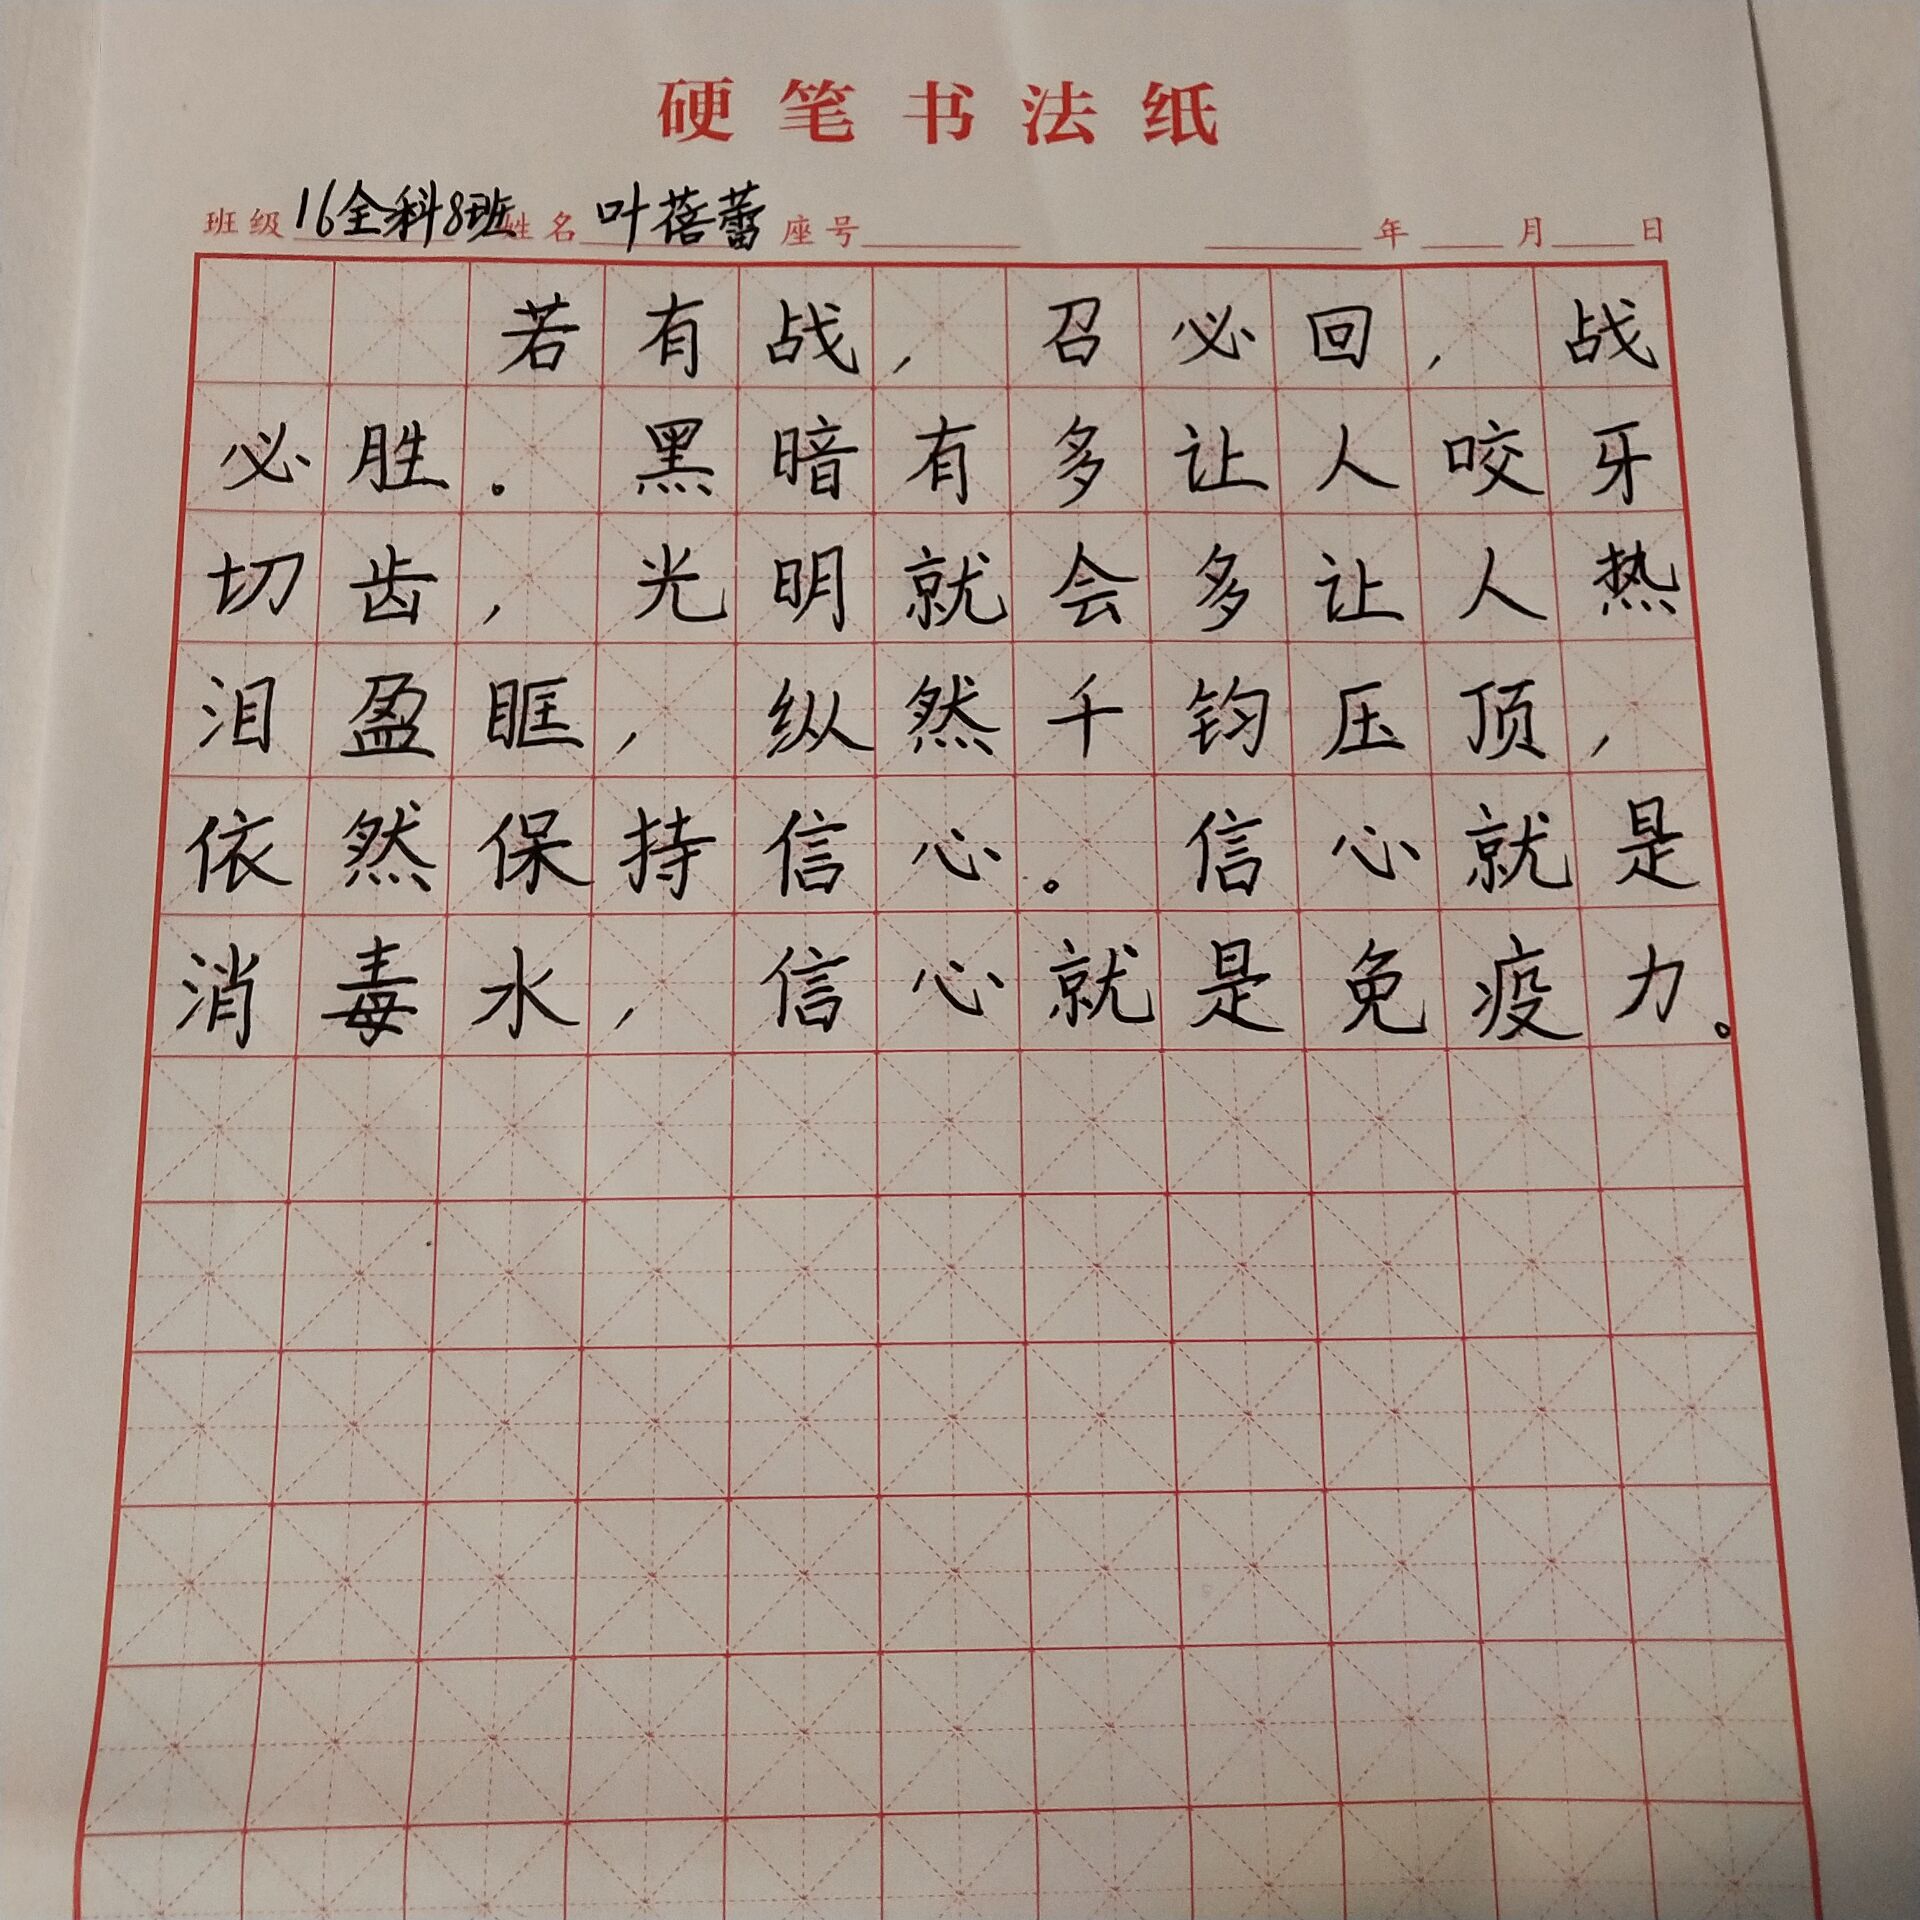 硬笔书法纸
班级 16全科8班 姓名 叶蓓蕾 座号 年 月 日
若有战，召必回，战
必胜。黑暗有多让人咬牙
切齿，光明就会多让人热
泪盈眶，纵然千钧压顶，
依然保持信心。信心就是
消毒水，信心就是免疫力。